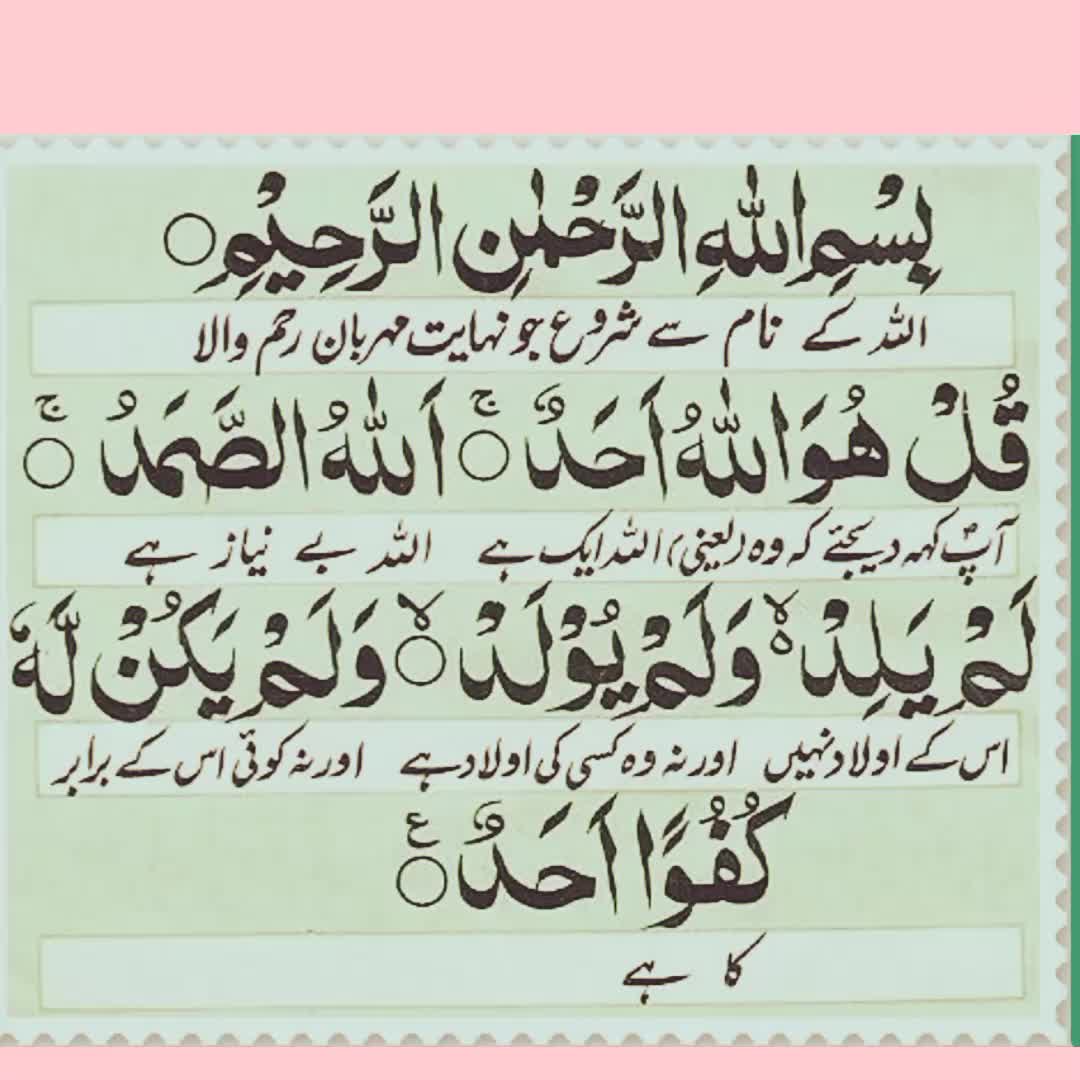 بِسْمِ اللّٰهِ الرَّحْمٰنِ الرَّحِيْمِ ○
اللہ کے نام سے شروع جو نہایت مہربان رحم والا
قُلْ هُوَ اللّٰهُ اَحَدٌ ○ۚ اَللّٰهُ الصَّمَدُ ○ۚ
آپؐ کہہ دیجئے کہ وہ (یعنی) اللہ ایک ہے اللہ بے نیاز ہے
لَمْ يَلِدْ ۙ۬ وَلَمْ يُوْلَدْ ○ۙ وَلَمْ يَكُنْ لَّهٗ
اس کے اولاد نہیں اور نہ وہ کسی کی اولاد ہے اور نہ کوئی اس کے برابر
كُفُوًا اَحَدٌ ○ع
کا ہے